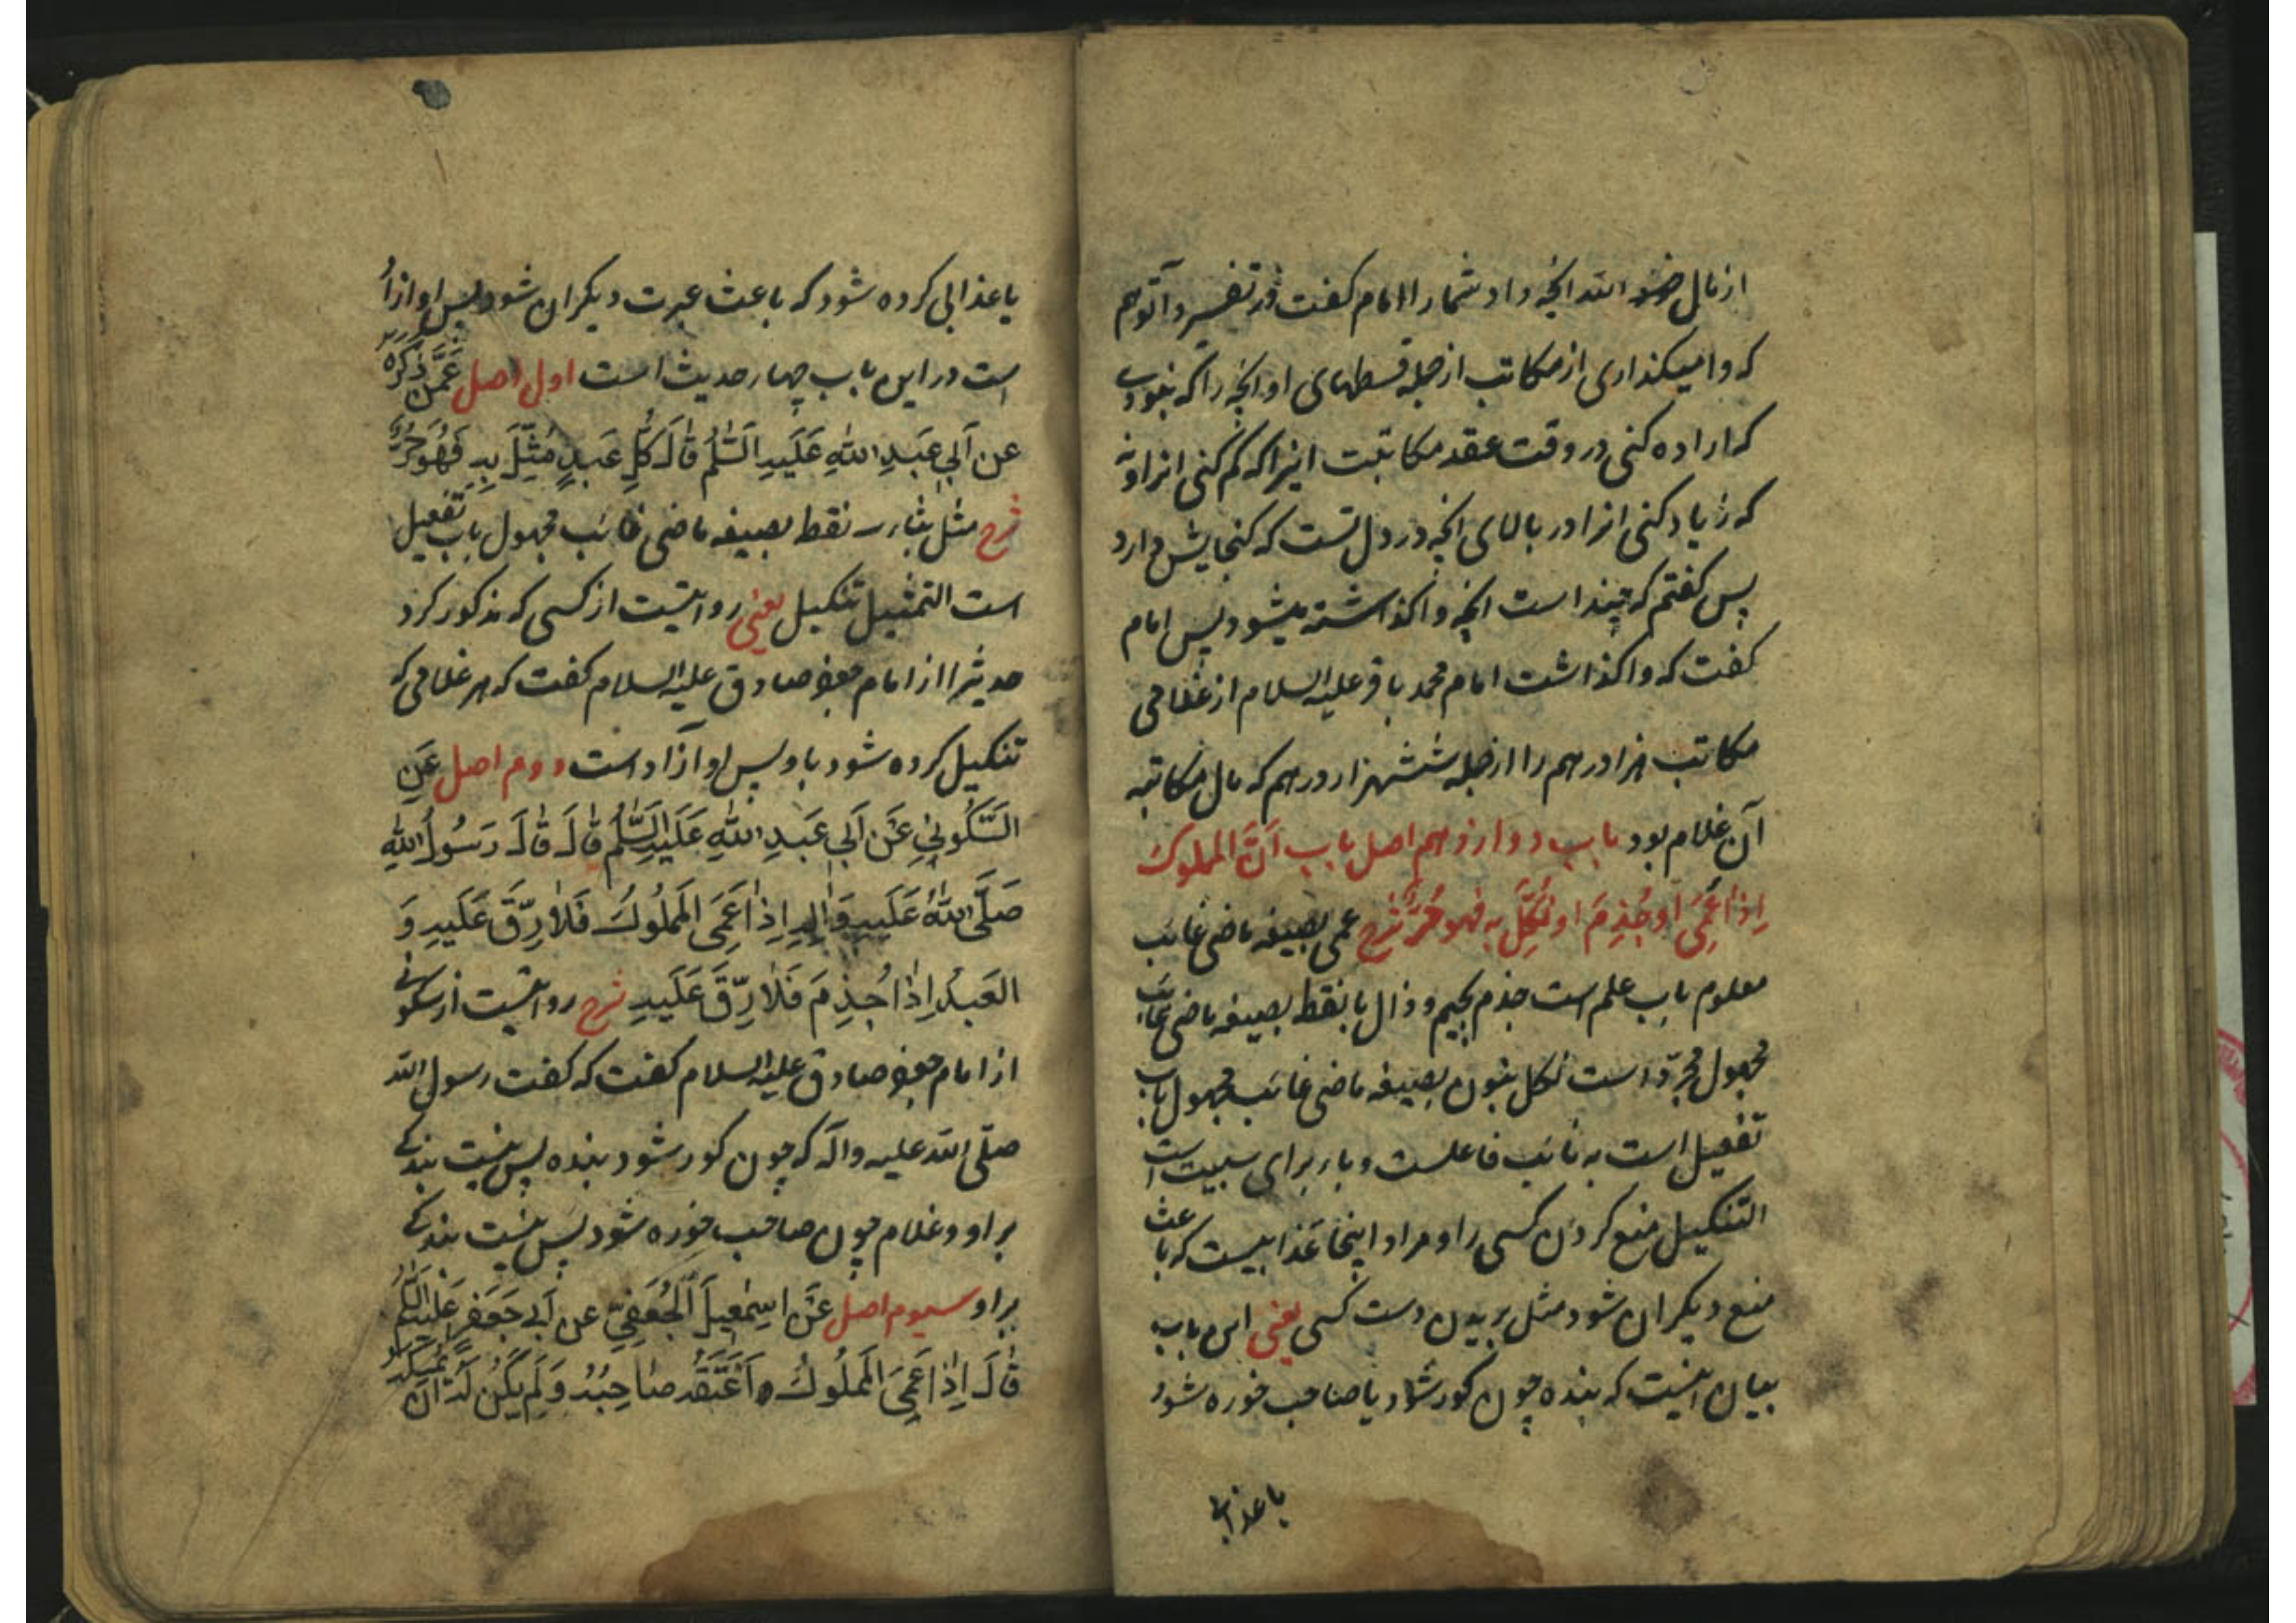 از مال خدا الله آنچه داد شما را امام گفت در تفسیر و آتوهم
که وا میگذاری از مکاتب از جمله قسطهای او آنچه را که بخود
که اراده کنی در وقت عقد مکاتبت اینرا که کم کنی انرا و نه
که زیاد کنی انرا در بالای آنچه در دل تست که گنجایش دارد
پس گفتم که چند است آنچه واگذاشته میشود پس امام
گفت که واگذاشت امام محمد باقر علیه السلام از غلامی
مکاتب هزار درهم را از جمله ششهزار درهم که مال مکاتبه
آن غلام بود باب دوازدهم اصل باب اَنَّ المملوک
اِذا عَمِیَ او جُذِمَ او نُکِّلَ به فهو حُرٌّ شرح عمی بصیغه ماضی غائب
معلوم باب علم است جذم بجیم و ذال با نقط بصیغه ماضی غائب
مجهول مجرّد است نکل بنون بصیغه ماضی غائب مجهول باب
تفعیل است به نائب فاعلست و باء برای سببیت است
التنکیل منع کردن کسی را و مراد اینجا عذابیست که باعث
منع دیگران شود مثل بریدن دست کسی یعنی این باب
بیان اینست که بنده چون کور شود یا صاحب خوره شود
با عذابی
یا عذابی کرده شود که باعث عبرت دیگران شود پس او ازاد
است در این باب چهار حدیث است اول اصل عَمَّن ذَکَرَهُ
عن اَبی عَبدِ اللهِ عَلَیهِ السَّلٰمُ قٰالَ کُلُّ عَبدٍ مُثِّلَ بِهِ فَهُوَ حُرٌّ
شرح مثل بثاء سه نقط بصیغه ماضی غائب مجهول باب تفعیل
است التمثیل تنکیل یعنی روایتست از کسی که مذکور کرد
حدیثرا از امام جعفر صادق علیه السلام گفت که هر غلامی که
تنکیل کرده شود باو پس او آزاد است دوم اصل عَنِ
السَّکُونِیِ عَن اَبی عَبدِ اللهِ عَلَیهِ السَّلٰمُ قٰالَ قٰالَ رَسُولُ اللهِ
صَلَّی اللهُ عَلَیهِ وَاٰلِهِ اِذٰا عَمِیَ المَملُوکُ فَلاٰ رِقَّ عَلَیهِ وَ
العَبدُ اِذٰا جُذِمَ فَلاٰ رِقَّ عَلَیهِ شرح روایتست از سکونی
از امام جعفر صادق علیه السلام گفت که گفت رسول الله
صلّی الله علیه وآله که چون کور شود بنده پس نیست بندگی
بر او و غلام چون صاحب خوره شود پس نیست بندگی
بر او سیوم اصل عَن اِسمٰعیلَ الجُعفِیِّ عن اَبی جَعفَرٍ عَلَیهِ السَّلٰمُ
قٰالَ اِذٰا عَمِیَ المَملُوکُ اَعتَقَهُ صٰاحِبُهُ وَ لَم یَکُن لَهُ اَن یُمسِکَهُ